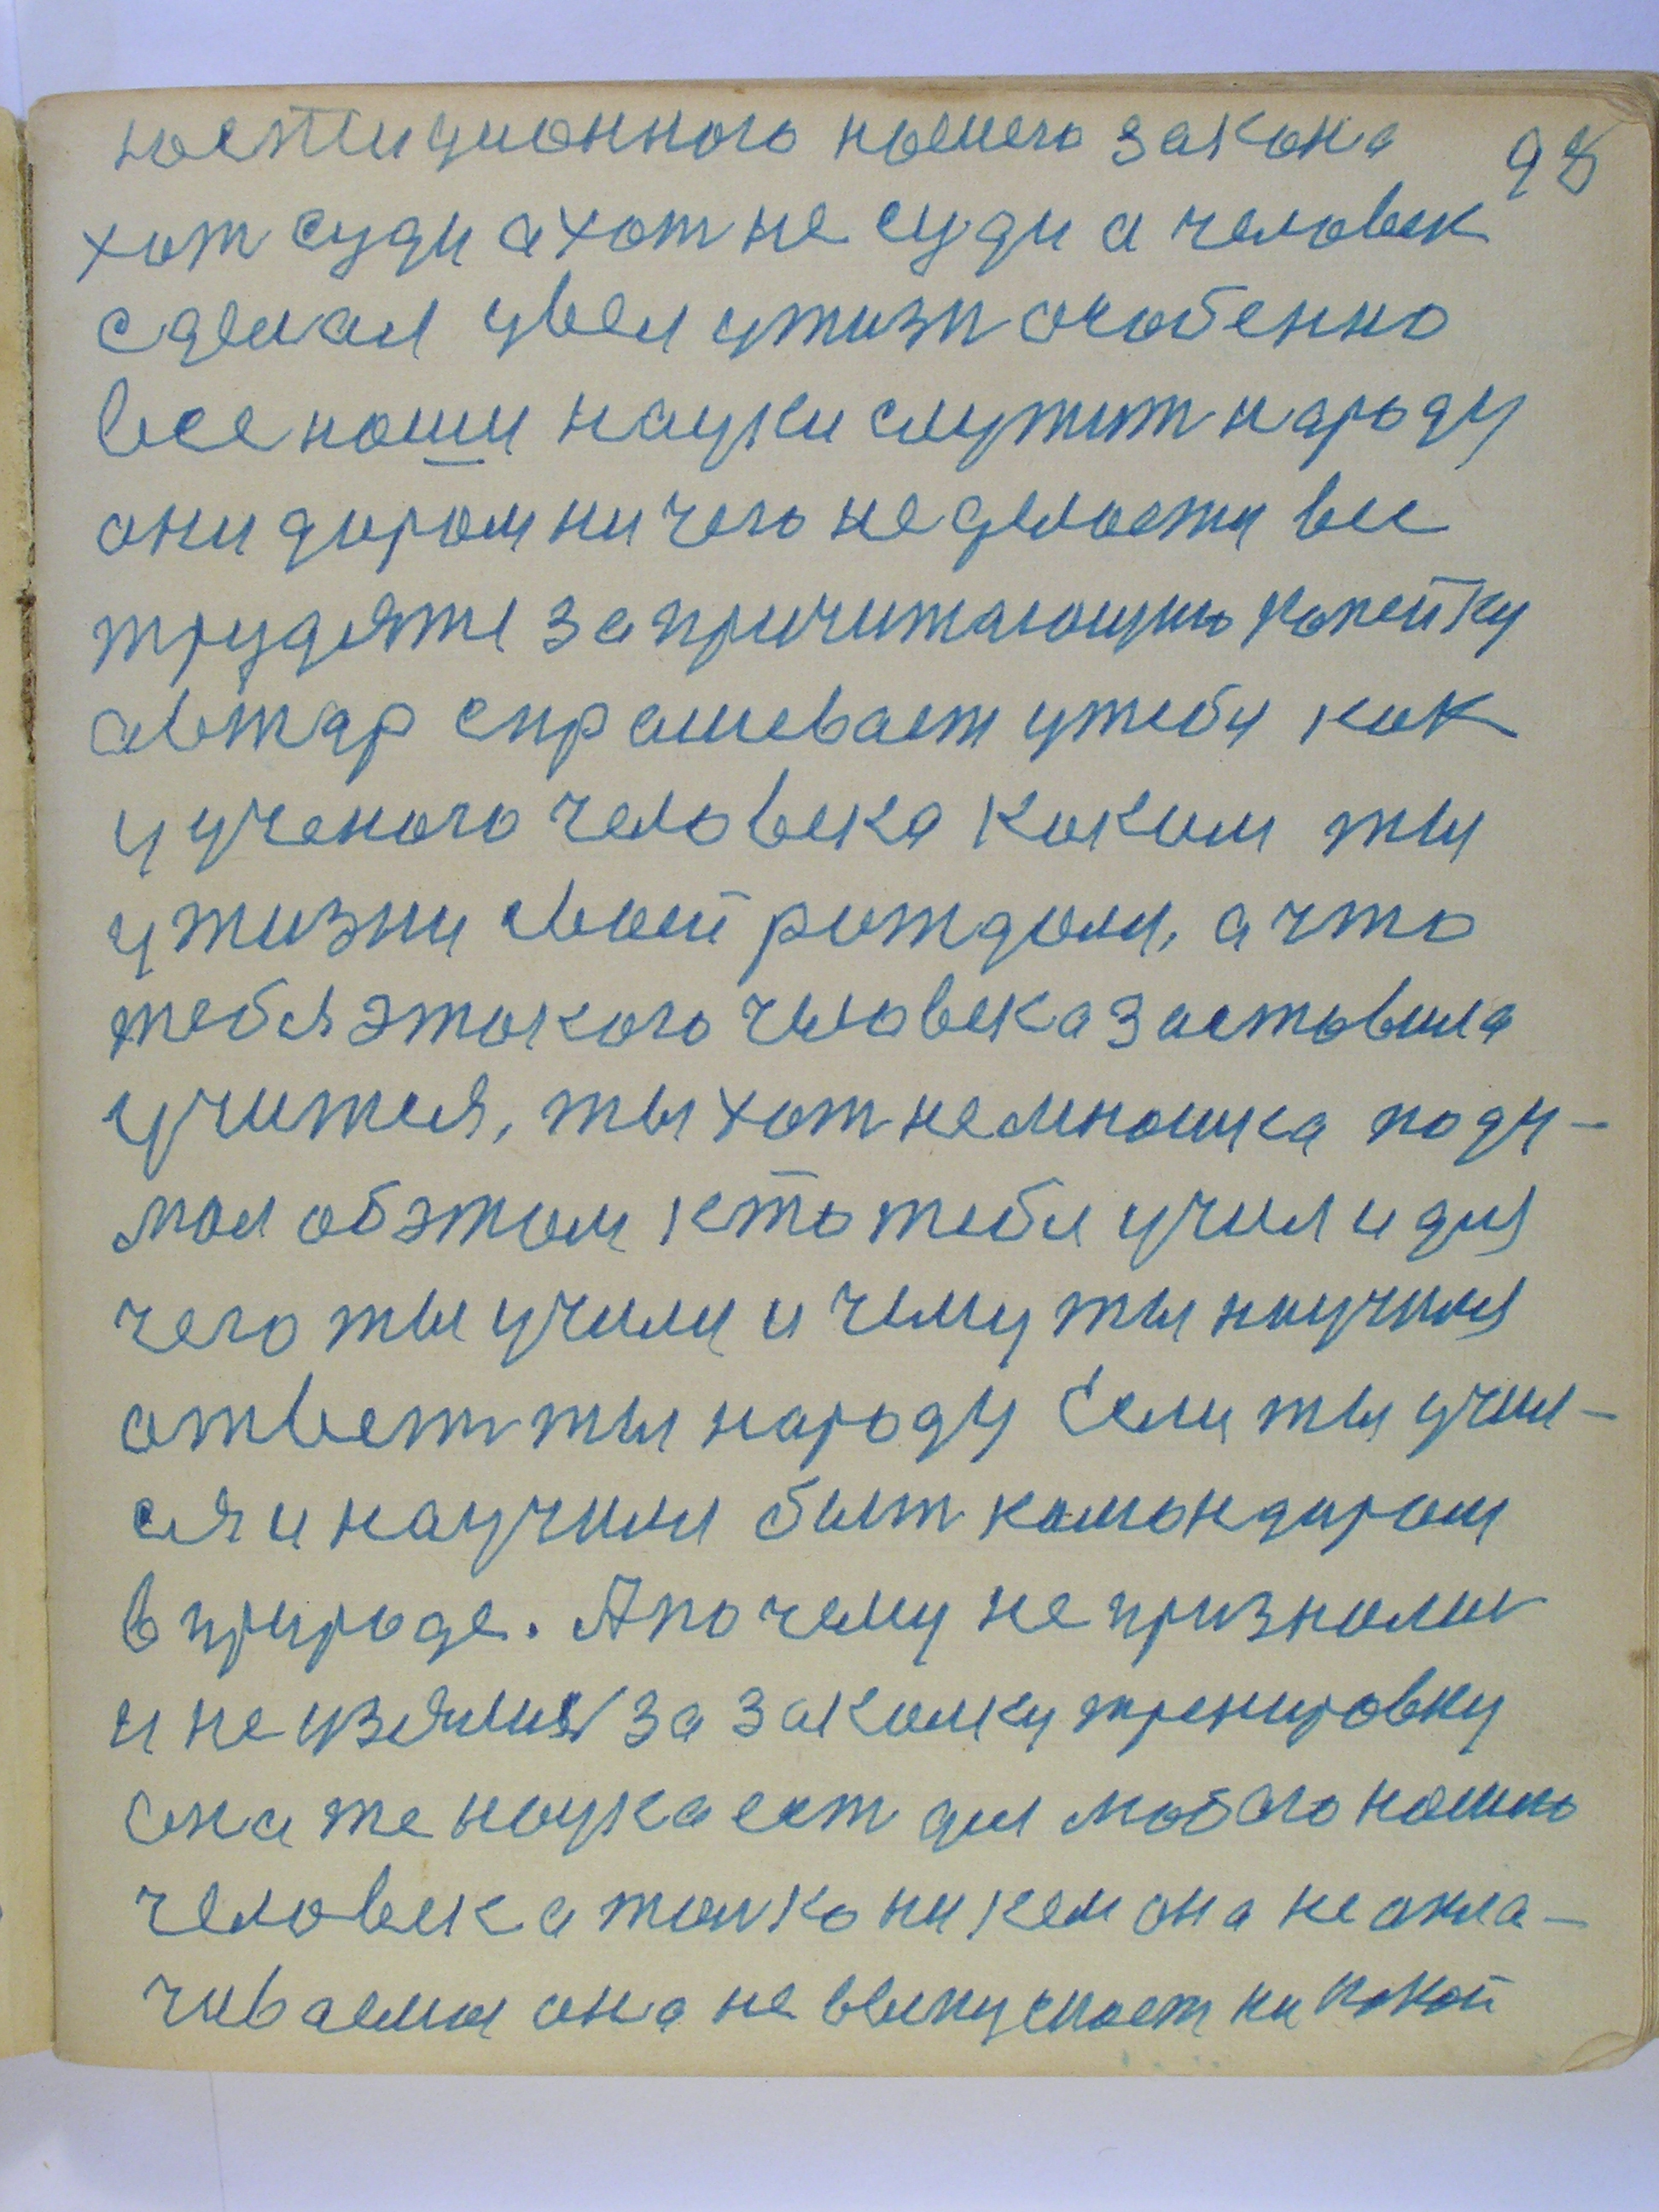 ностиционного нашего закона 98
хот суди а хот не суди а человек
сделал увел ужизн особенно
все наши науки служит народу
они даром ничего не делаети все
трудяте за причитающию копейку
автар спрашевает утебя как
у ученого человека каким ты
ужизни своей рождали, а что
тебя этокого человека заставила
учится, ты хот немношка поду-
мал обэтом кто тебя учил и для
чего ты учили и чему ты научился
ответ ты народу Если ты учил-
ся и научили быт командиром
в природе. А почему не признали
и не узялися за закалку тренировку
она же наука ест для любого нашго
человека толко ни кем она не опла-
чиваема она не выпускает ни какой